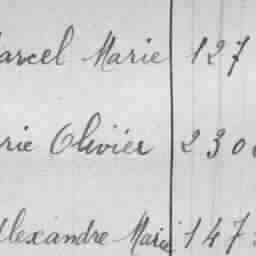 Marcel Marie 127
rie Olivier 230
Alexandre Marie 147